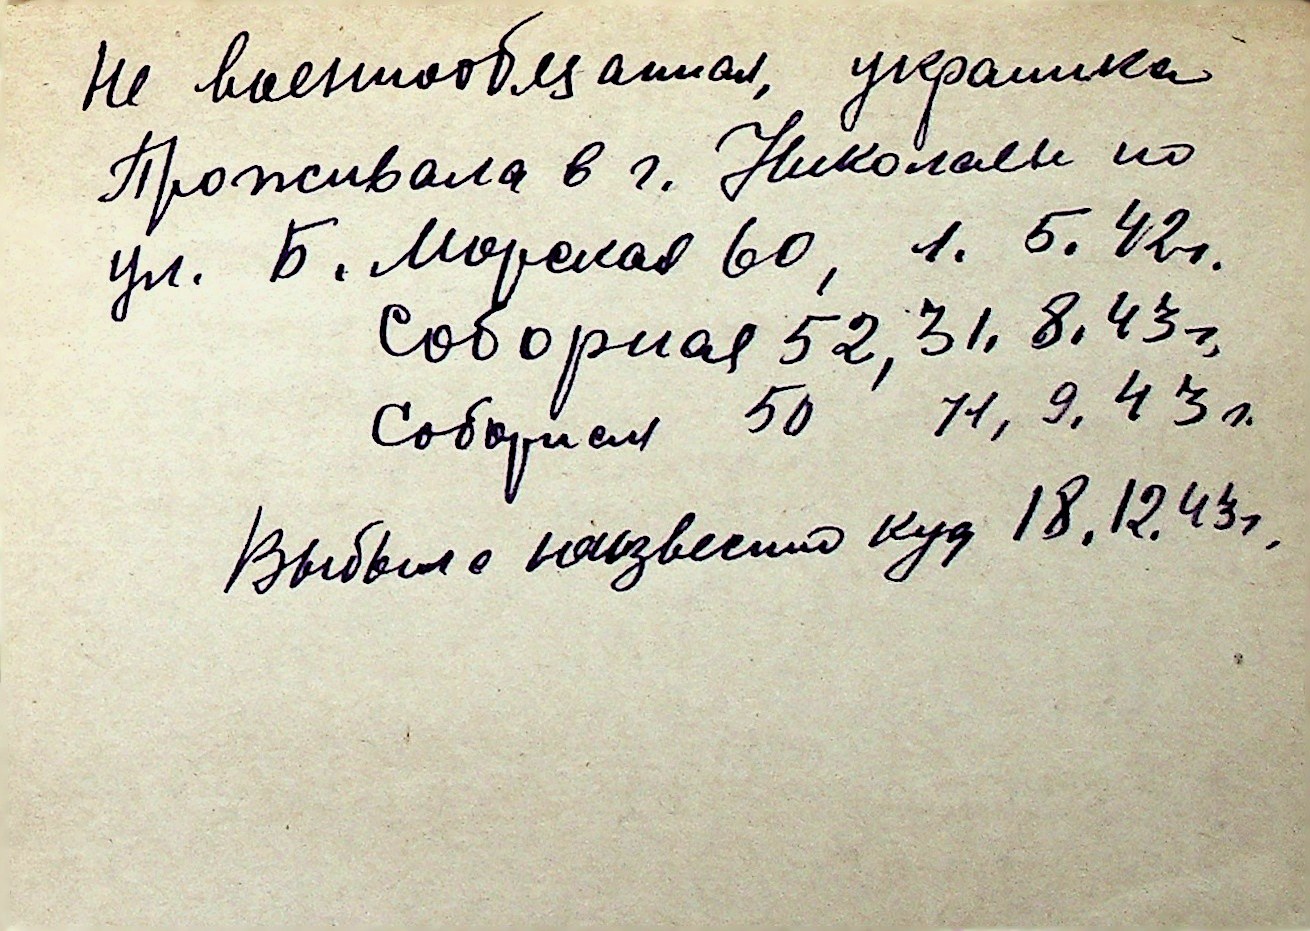 Не военнообязанная, украинка
Проживала в г. Николаеве по
ул. Б. Морская 60, 1. 5. 42г.
Соборная 52, 31. 8. 43г,
Соборная 50 11, 9. 43г.
Выбыла неизвестно куда 18. 12. 43г,